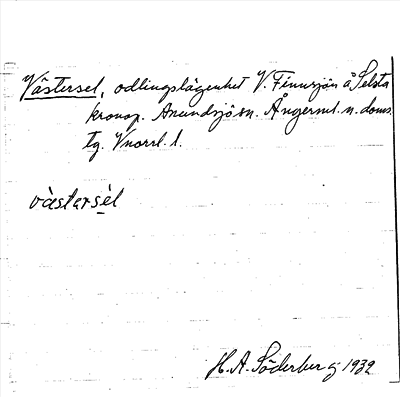 Västersel, odlingslägenhet V. Finnsjön å Selsta
kronop. Anundsjö sn. Ångerml. n. doms.
tg. Vnorrl. l.
västersèl
H. A. Söderberg 1932